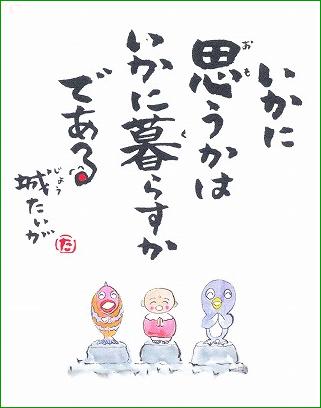 いかに
思うかは
いかに暮らすか
である
城たいが
た